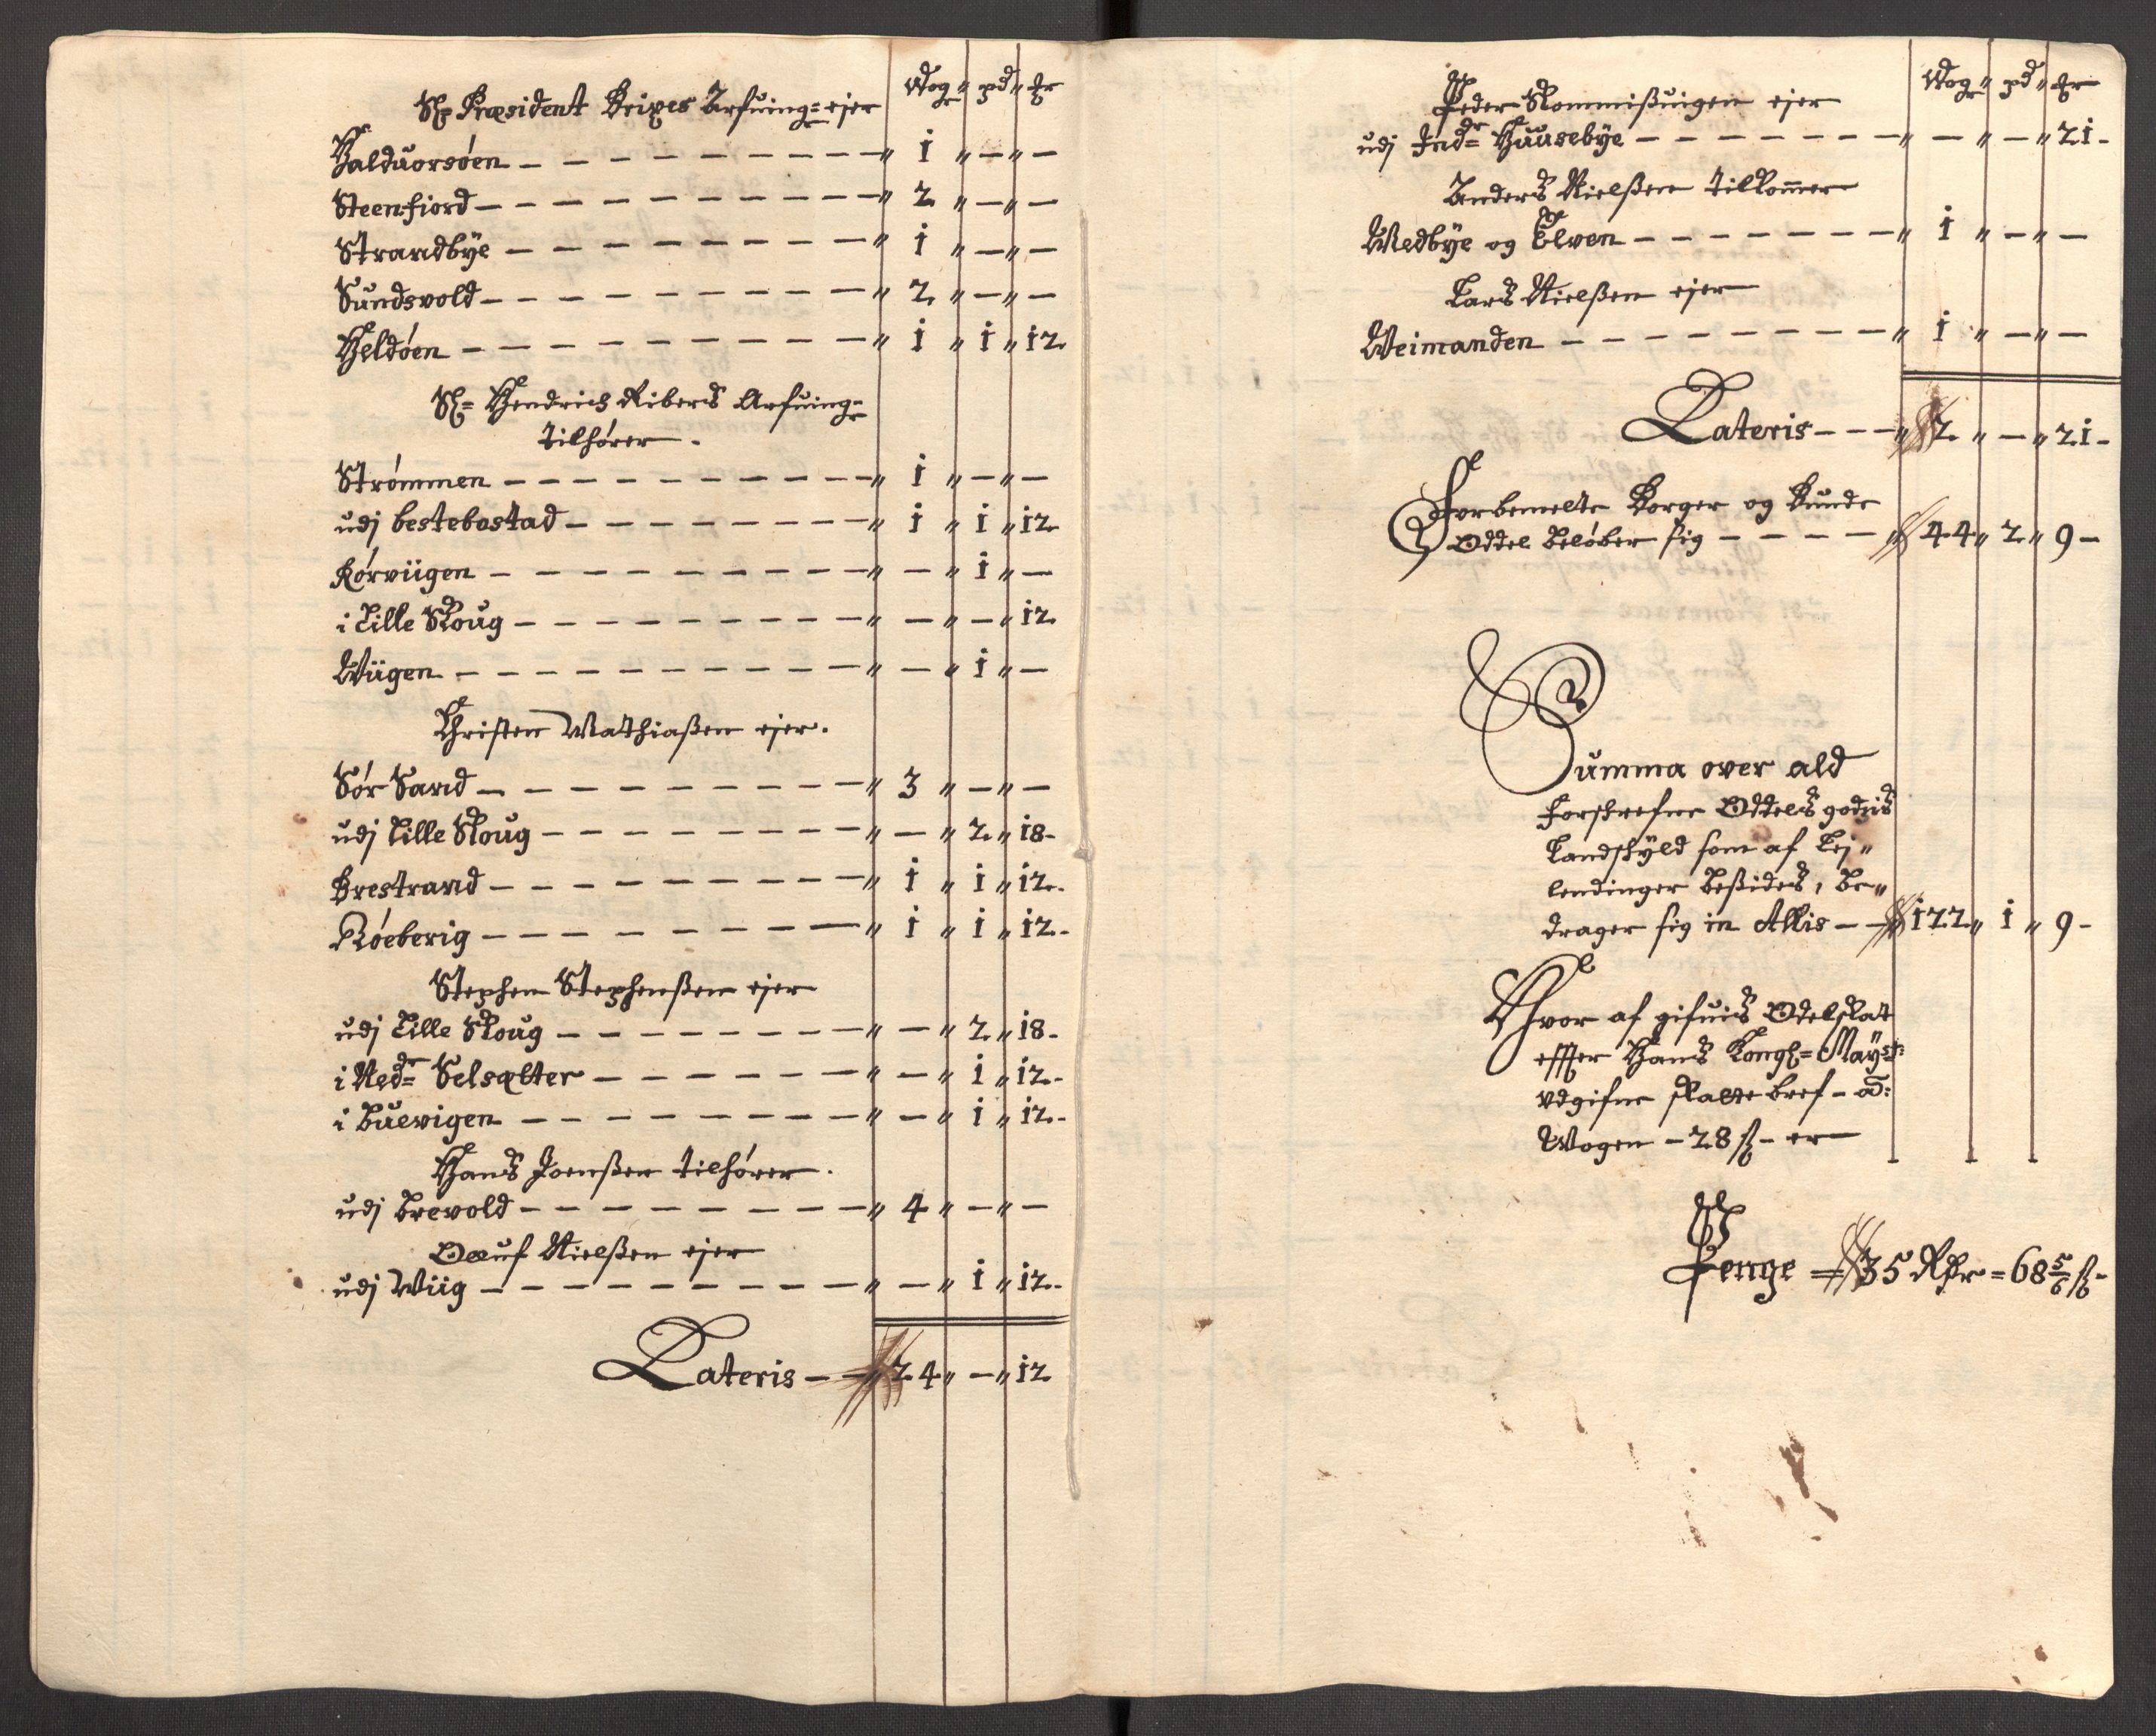 Wog„ pd„ mr
Sl: Præsident Kripes Arfuing= ejer
Halduorsøen – „ 1 „ – „ –
Steenfiord – „ 2 „ – „ –
Strandbÿe – „ 1 „ – „ –
Sundsvold – „ 2 „ – „ –
Heldøen – „ 1 „ 1 „ 12
Sl= Hendrich Ribers Arfuing=
tilhører.
Strømmen – „ 1 „ – „ –
udj bestebostad – „ 1 „ 1 „ 12
Rørviigen – „ – „ 1 „ –
i Lille Skoug – „ – „ – „ 12
Wiigen – „ – „ 1 „ –
Christen Mathiaßen ejer.
Sør Sand – „ 3 „ – „ –
udj Lille Skoug – „ – „ 2 „ 18-
Brestrand – „ 1 „ 1 „ 12-
Røeberig – „ 1 „ 1 „ 12-
Stephen Stephenßen ejer
udj Lille Skoug – „ – „ 2 „ 18-
i Nedr= Selsælter – „ – „ 1 „ 12-
i Buevigen – „ – „ 1 „ 12-
Hans Joenßen tilhører.
udj Brevold – „ 4 „ – „ –
Oluf Nielßen ejer
udj Wiig – „ – „ 1 „ 12-
Lateris – „ 24 „ – „ 12
Wog„ pd„ mr
Peder Rommißvigen ejer
udj Indr= Huusebÿe – „ – „ – „ 21-
Anders Nielßen tilkommer
Medbÿe og Elven – „ 1 „ – „ –
Lars Nielßen ejer
Weimanden – „ 1 „ – „ –
Lateris – „ 2 „ – „ 21-
Forbemelte Borger og Bunde
Oddel beløber sig – „ 44 „ 2 „ 9-
Summa over ald
forskrefne Oddels godzis
Landskÿld som af Lej„
lendinger besides, be„
drager sig in Allis – 122 „ 1 „ 9-
Hvor af gifuis Odelskat
effter Hans Kongl= Maÿst:
udgifne skatte bref - ad:
Wogen - 28 s - er
Penge = 35 Rdr = 68 5/6 s-